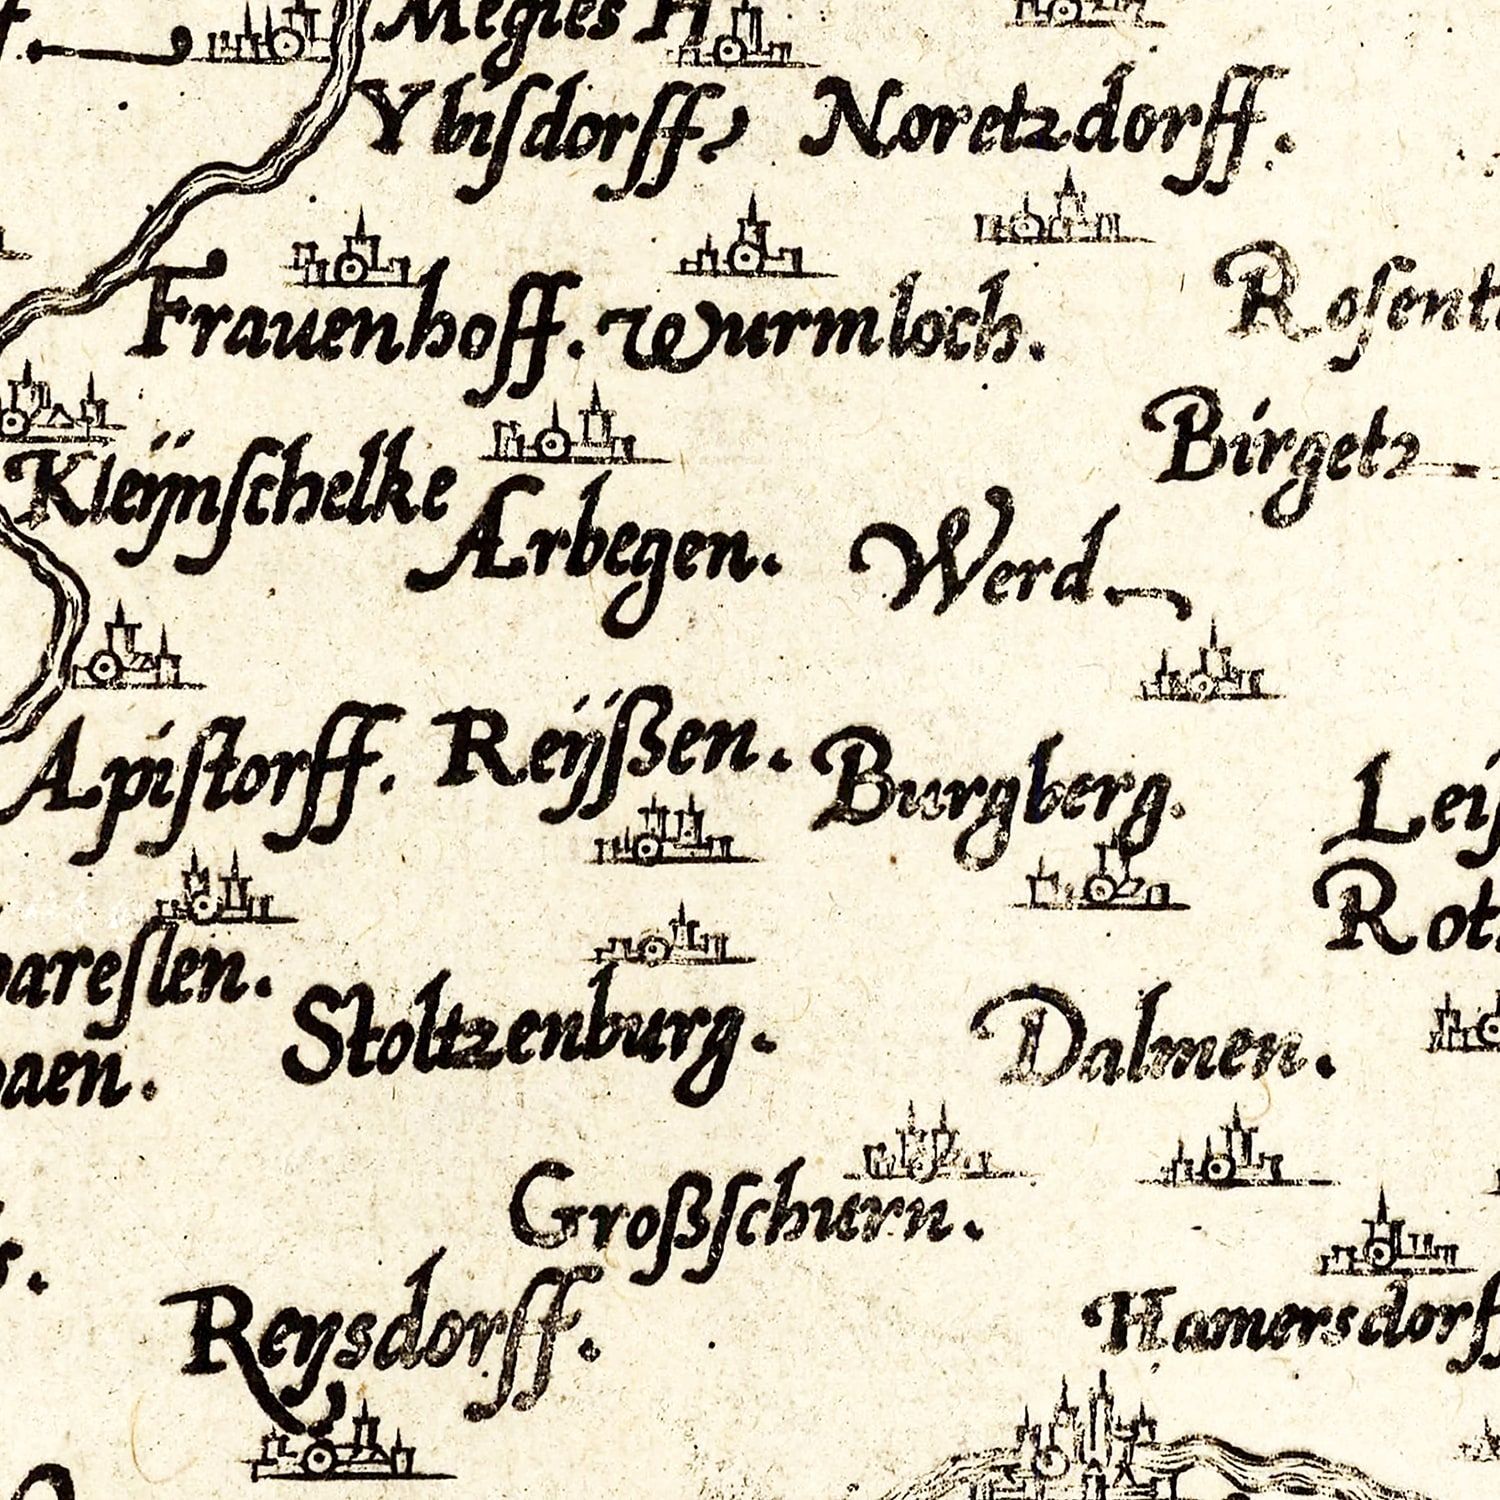 Megies H
Ybiſdorff
Noretzdorff.
Frauenhoff.
Wurmloch.
Roſent
Birgetz
Kleÿnſchelke
Arbegen.
Werd
Apiſtorff.
Reÿßen.
Burgberg.
Leiſ
Rot
areſlen.
Stoltzenburg.
Dalmen.
aen.
Großſchurn.
Reysdorff.
Hamersdorff